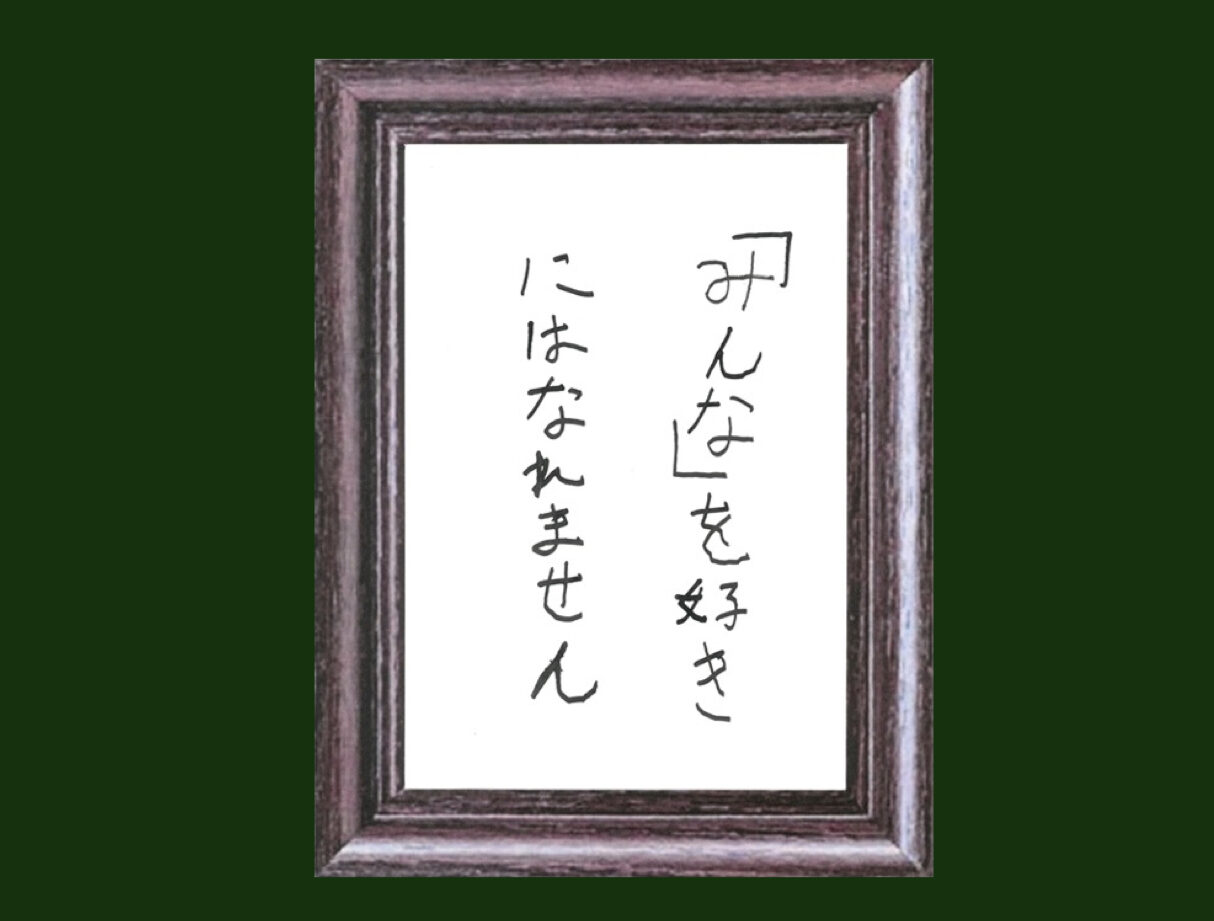 「みんな」を好き
にはなれません